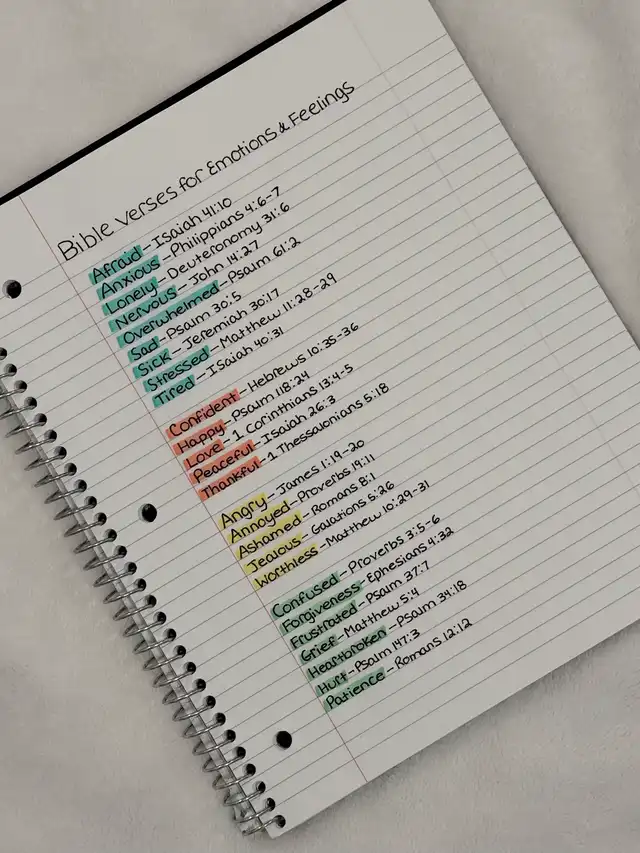 Bible verses for Emotions & Feelings
Afraid - Isaiah 41:10
Anxious - Philippians 4:6-7
Lonely - Deuteronomy 31:6
Nervous - John 14:27
Overwhelmed - Psalm 61:2
Sad - Psalm 30:5
Sick - Jeremiah 30:17
Stressed - Matthew 11:28-29
Tired - Isaiah 40:31
Confident - Hebrews 10:35-36
Happy - Psalm 118:24
Love - 1 Corinthians 13:4-5
Peaceful - Isaiah 26:3
Thankful - 1 Thessalonians 5:18
Angry - James 1:19-20
Annoyed - Proverbs 19:11
Ashamed - Romans 8:1
Jealous - Galations 5:26
Worthless - Matthew 10:29-31
Confused - Proverbs 3:5-6
Forgiveness - Ephesians 4:32
Frustrated - Psalm 37:7
Grief - Matthew 5:4
Heartbroken - Psalm 34:18
Hurt - Psalm 147:3
Patience - Romans 12:12